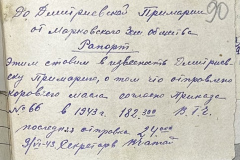 90
До Дмитриевской Примарии
от Марковского Зем общества
Рапорт
Этим ставим в известность Дмитриев-
ску Примарию, о том что отправлено
коровьего масла согласно Приказа
№ 66 в 1943 г. 182,300
последняя отправка 24,000
Секретарь